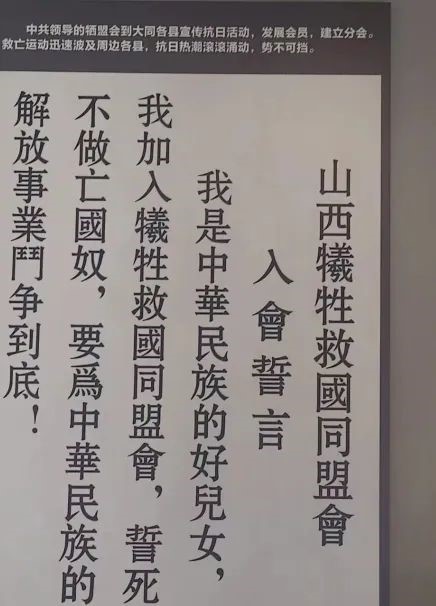 中共领导的牺盟会到大同各县宣传抗日活动，发展会员，建立分会。
救亡运动迅速波及周边各县，抗日热潮滚滚涌动，势不可挡。
山西犧牲救國同盟會
入會誓言
我是中華民族的好兒女，
我加入犧牲救國同盟會，誓死
不做亡國奴，要爲中華民族的
解放事業鬥争到底！